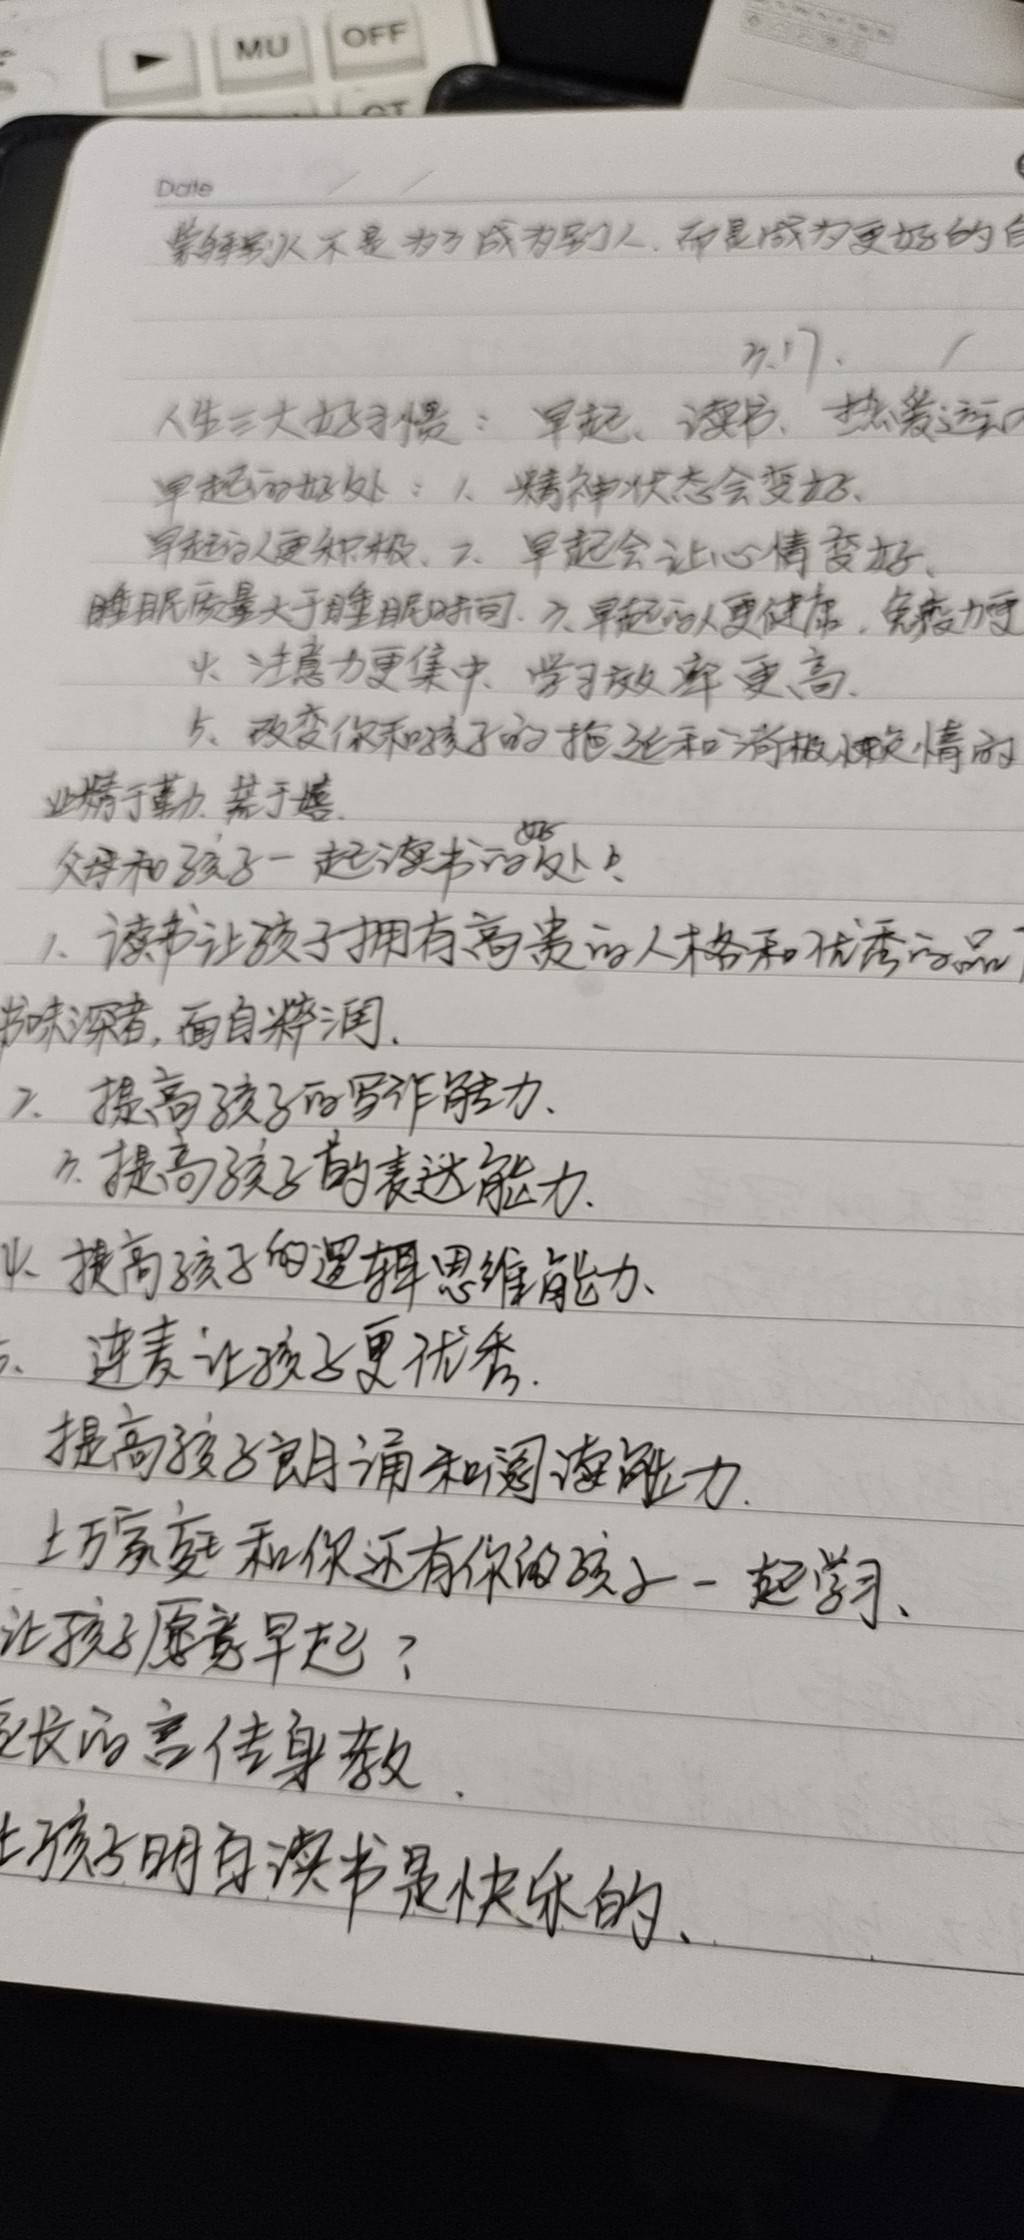 MU
OFF
Date / /
别人不是为了成为别人、而是成为更好的
3.17.
人生三大好习惯：早起、读书、热爱运
早起的好处：1、精神状态会变好、
早起的人更积极、2、早起会让心情变好、
睡眠质量大于睡眠时间.3、早起的人更健康，免疫力更
4、注意力更集中、学习效率更高、
5、改变你和孩子的拖延和消极懒惰的
业精于勤、荒于嬉.
父母和孩子一起读书的好处：
1、读书让孩子拥有高贵的人格和优秀的品
书味深者，面自粹润.
2、提高孩子的写作能力、
3.提高孩子的表达能力.
4、提高孩子的逻辑思维能力、
5、连麦让孩子更优秀.
提高孩子朗诵和阅读能力.
上万家庭和你还有你的孩子一起学习、
让孩子愿意早起？
家长的言传身教.
让孩子明白读书是快乐的、